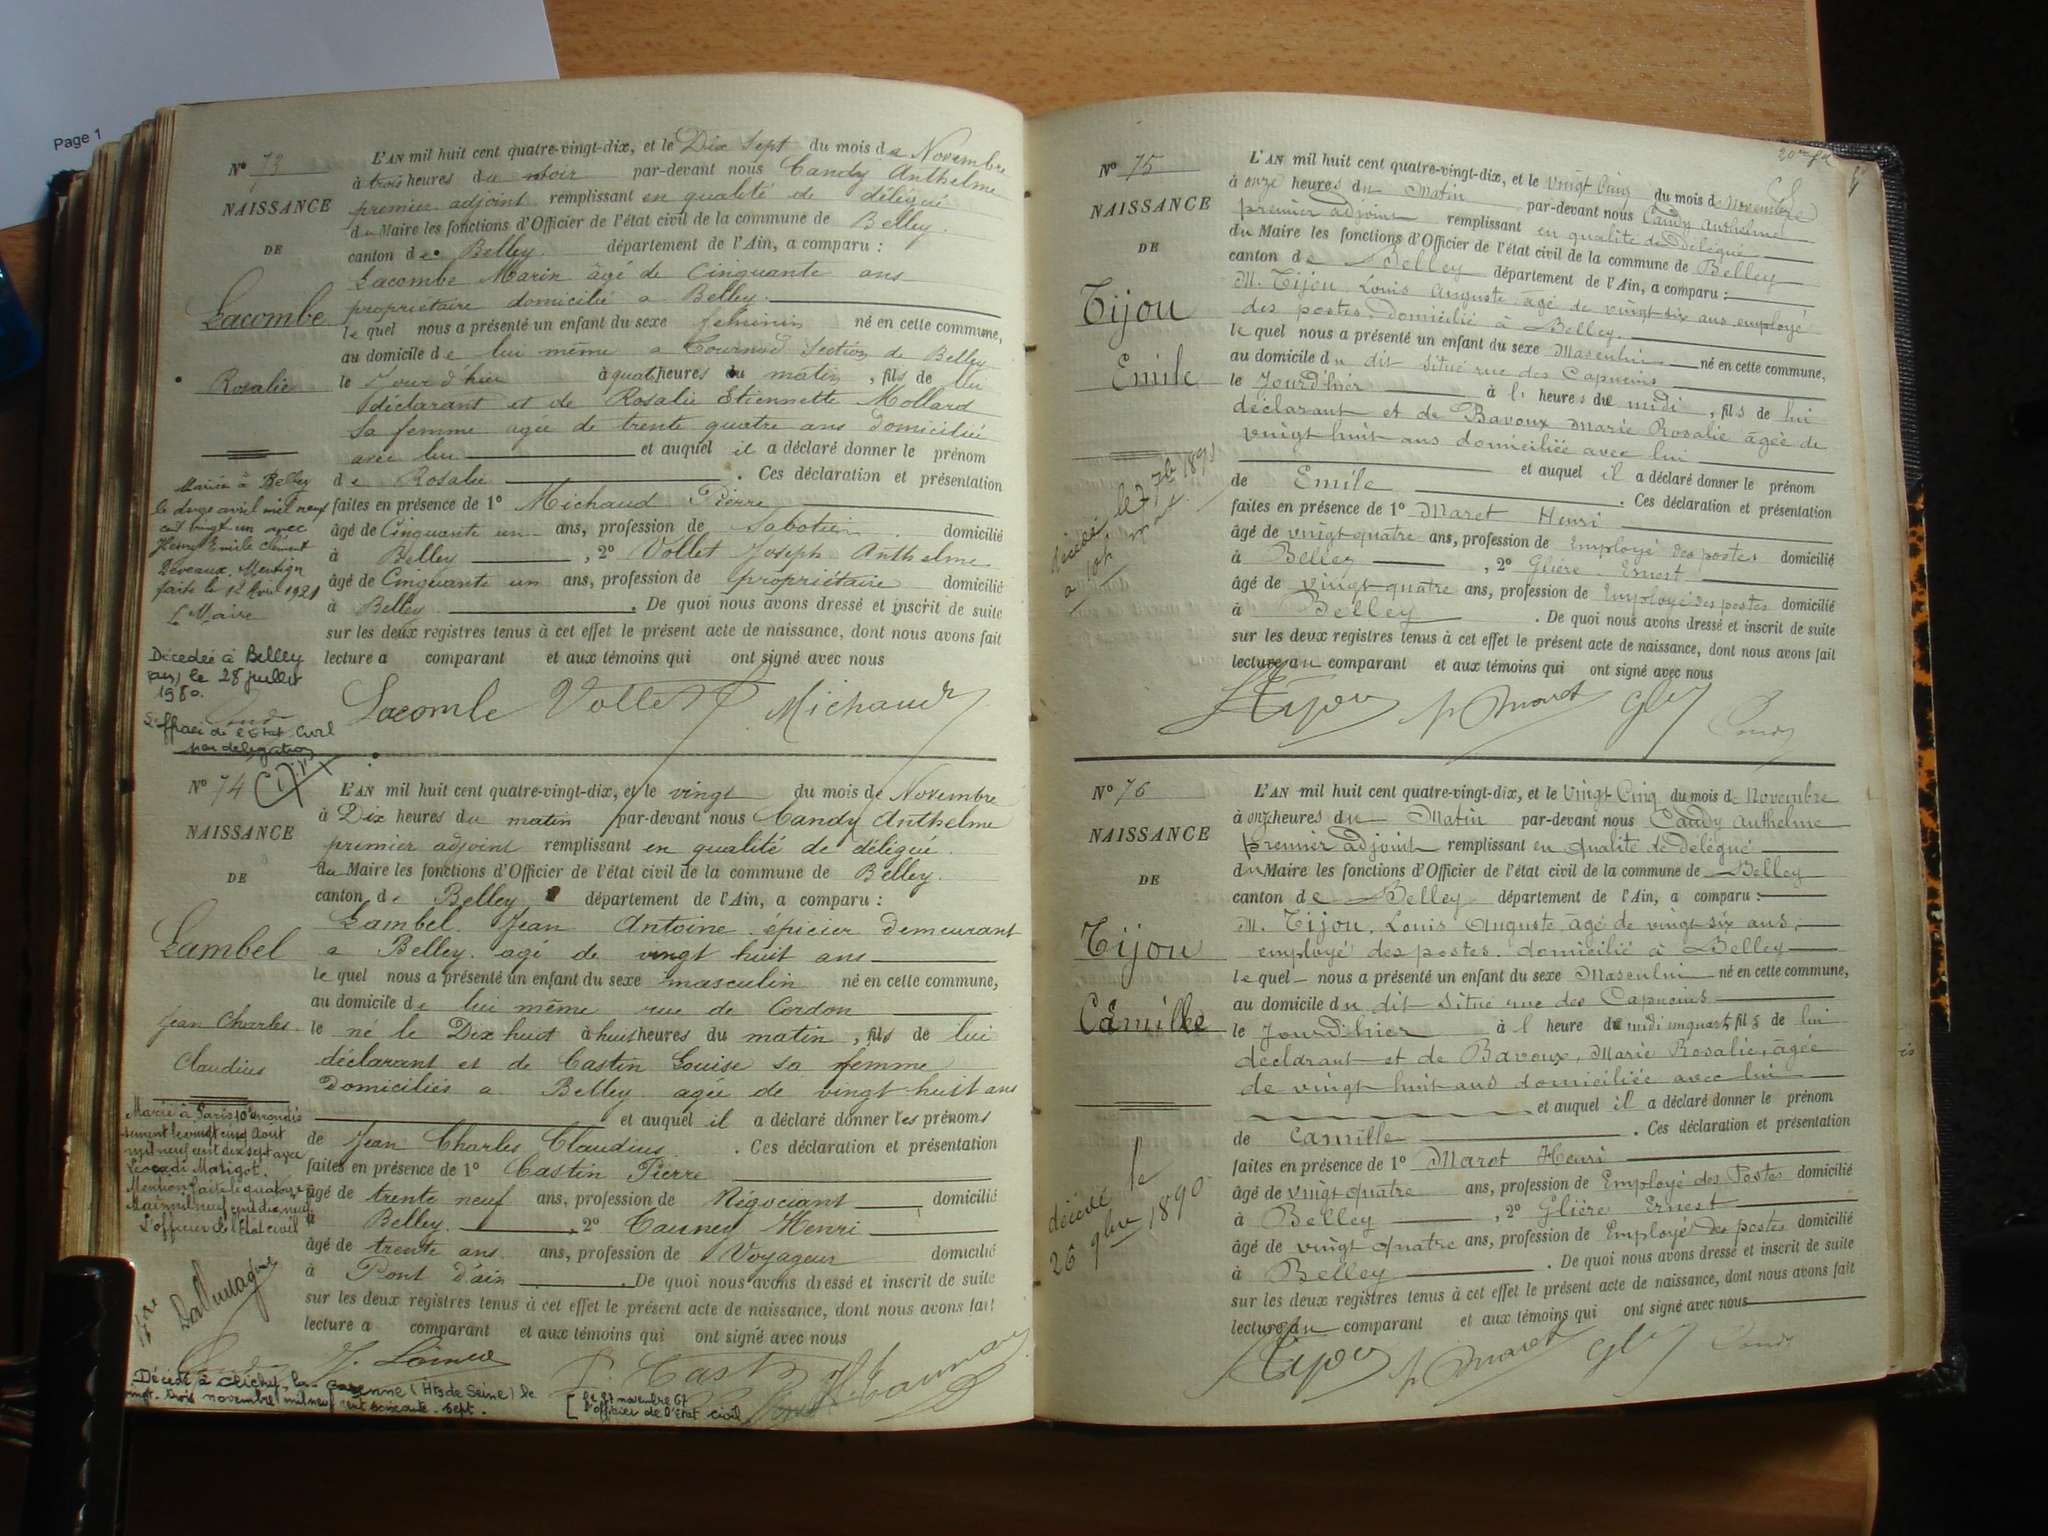 Page 1
N° 73
NAISSANCE
DE
Lacombe
Rosalie
L'AN mil huit cent quatre-vingt-dix, et le Dix Sept du mois de Novembre
à trois heures du soir par-devant nous Candy Anthelme
premier adjoint remplissant en qualité de délégué
du Maire les fonctions d'Officier de l'état civil de la commune de Belley.
canton de Belley. département de l'Ain, a comparu :
Lacombe Marin âgé de Cinquante ans
propriétaire domicilié a Belley.
le quel nous a présenté un enfant du sexe feminin né en cette commune,
au domicile de lui même a Section de Belley
le Jour d'hier à quatre heures du matin, fils de lui
déclarant et de Rosalie Etiennette Mollard
sa femme agée de trente quatre ans domiciliée
avec lui et auquel il a déclaré donner le prénom
de Rosalie . Ces déclaration et présentation
faites en présence de 1° Michaud Pierre
âgé de Cinquante un ans, profession de Sabotier domicilié
à Belley , 2° Vollet Joseph Anthelme
âgé de Cinquante un ans, profession de propriétaire domicilié
à Belley . De quoi nous avons dressé et inscrit de suite
sur les deux registres tenus à cet effet le présent acte de naissance, dont nous avons fait
lecture a comparant et aux témoins qui ont signé avec nous
Lacombe Vollet Michaud
Mariée à Belley
le douze avril mil neuf
cent vingt un avec
Henri Emile Clément
Deveaux. Mention
faite le 12 Avril 1921
Le Maire
Décédée à Belley
(Ain) le 28 juillet
1980.
L'officier de l'Etat Civil
par délégation
N° 74
NAISSANCE
DE
Lambel
Jean Charles
Claudius
L'AN mil huit cent quatre-vingt-dix, et le vingt du mois de Novembre
à Dix heures du matin par-devant nous Candy Anthelme
premier adjoint remplissant en qualité de délégué
du Maire les fonctions d'Officier de l'état civil de la commune de Belley.
canton de Belley département de l'Ain, a comparu :
Lambel Jean Antoine épicier demeurant
a Belley. agé de vingt huit ans
le quel nous a présenté un enfant du sexe masculin né en cette commune,
au domicile de lui même rue de Cordon
le né le Dix huit à huit heures du matin, fils de lui
déclarant et de Castin Louise sa femme
Domiciliés a Belley agée de vingt huit ans
et auquel il a déclaré donner les prénoms
de Jean Charles Claudius . Ces déclaration et présentation
faites en présence de 1° Castin Pierre
âgé de trente neuf ans, profession de Négociant domicilié
à Belley. , 2° Henri
âgé de trente ans. ans, profession de Voyageur domicilié
à Pont d'ain . De quoi nous avons dressé et inscrit de suite
sur les deux registres tenus à cet effet le présent acte de naissance, dont nous avons fait
lecture a comparant et aux témoins qui ont signé avec nous
Marié à Paris 10e arrondis
sement le vingt cinq Août
mil neuf cent dix sept avec
Léocadi Matigot.
Mention faite le quatorze
Mai mil neuf cent dix neuf
L'officier de l'Etat civil
Décédé à Clichy-la-Garenne (Hts de Seine) le
vingt-trois novembre mil neuf cent soixante-sept.
le 27 novembre 67
l'officier de l'Etat civil
N° 75
NAISSANCE
DE
Tijou
Emile
décédé le 7 7bre 1891
L'AN mil huit cent quatre-vingt-dix, et le vingt Cinq du mois de Novembre
à onze heures du Matin par-devant nous Candy Anthelme
premier adjoint remplissant en qualité de délégué
du Maire les fonctions d'Officier de l'état civil de la commune de Belley
canton de Belley département de l'Ain, a comparu :
M. Tijou Louis Auguste agé de vingt-six ans employé
des postes, domicilié à Belley
le quel nous a présenté un enfant du sexe Masculin né en cette commune,
au domicile du dit situé rue des Capucins
le Jourd'hier à 1 heures du midi, fils de lui
déclarant et de Bavoux Marie Rosalie âgée de
vingt huit ans domiciliée avec lui
et auquel il a déclaré donner le prénom
de Emile . Ces déclaration et présentation
faites en présence de 1° Maret Henri
âgé de vingt quatre ans, profession de Employé des postes domicilié
à Belley , 2° Glière Ernest
âgé de vingt quatre ans, profession de Employé des postes domicilié
à Belley . De quoi nous avons dressé et inscrit de suite
sur les deux registres tenus à cet effet le présent acte de naissance, dont nous avons fait
lecture au comparant et aux témoins qui ont signé avec nous
LTijou Maret
N° 76
NAISSANCE
DE
Tijou
Camille
décédé le
26 9bre 1890
L'AN mil huit cent quatre-vingt-dix, et le Vingt Cinq du mois de Novembre
à onze heures du Matin par-devant nous Candy Anthelme
premier adjoint remplissant en qualité de délégué
du Maire les fonctions d'Officier de l'état civil de la commune de Belley
canton de Belley département de l'Ain, a comparu :
M. Tijou, Louis Auguste, âgé de vingt six ans,
employé des postes. domicilié à Belley
le quel nous a présenté un enfant du sexe Masculin né en cette commune,
au domicile du dit situé rue des Capucins
le Jourd'hier à 1 heure du midi un quart, fils de lui
déclarant et de Bavoux, Marie Rosalie, âgée
de vingt huit ans domiciliée avec lui
et auquel il a déclaré donner le prénom
de Camille . Ces déclaration et présentation
faites en présence de 1° Maret Henri
âgé de vingt quatre ans, profession de Employé des Postes domicilié
à Belley , 2° Glière Ernest
âgé de vingt quatre ans, profession de Employé des postes domicilié
à Belley . De quoi nous avons dressé et inscrit de suite
sur les deux registres tenus à cet effet le présent acte de naissance, dont nous avons fait
lecture au comparant et aux témoins qui ont signé avec nous
LTijou Maret